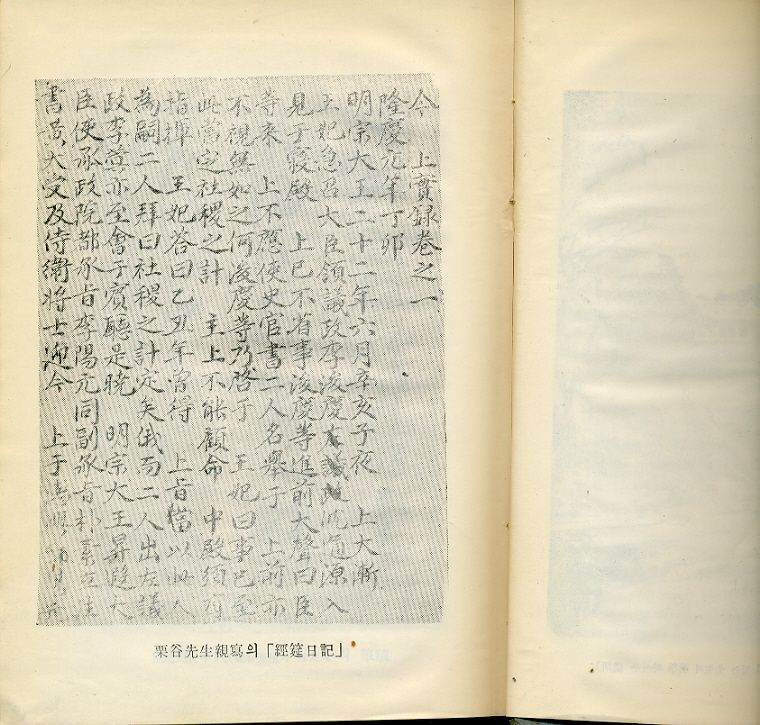 今 上實錄卷之一
隆慶元年丁卯
明宗大王二十二年六月辛亥子夜 上大漸
王妃急召大臣領議政李浚慶左議政沈通源入
見于寢殿 上已不省事浚慶等進前大聲曰臣
等來 上不應使史官書二人名擧于 上前亦
不視無如之何浚慶等乃啓于 王妃曰事已至
此當定社稷之計 主上不能顧命 中殿須有
指揮 王妃答曰乙丑年曾得 上旨當以此人
為嗣二人拜曰社稷之計定矣俄而二人出左議
政李蓂亦至會于賓廳是曉 明宗大王昇遐大
臣使承政院都承旨李陽元同副承旨朴素立注
書黃大受及侍衛將士迎今 上于
栗谷先生親寫의「經筵日記」